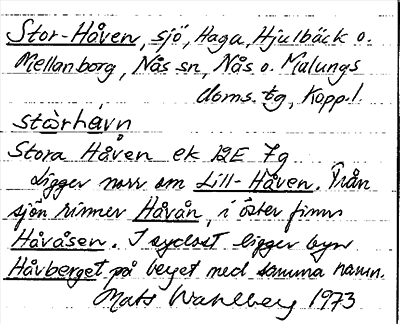 Stor-Håven, sjö, Haga, Hjulbäck o.
Mellanborg, Nås sn, Nås o. Malungs
doms. tg, Kopp. l.
stòrhávn
Stora Håven ek 12E 7g
Ligger norr om Lill-Håven. Från
sjön rinner Håvån, i öster finns
Håvåsen. I sydost ligger byn
Håvberget på berget med samma namn.
Mats Wahlberg 1973